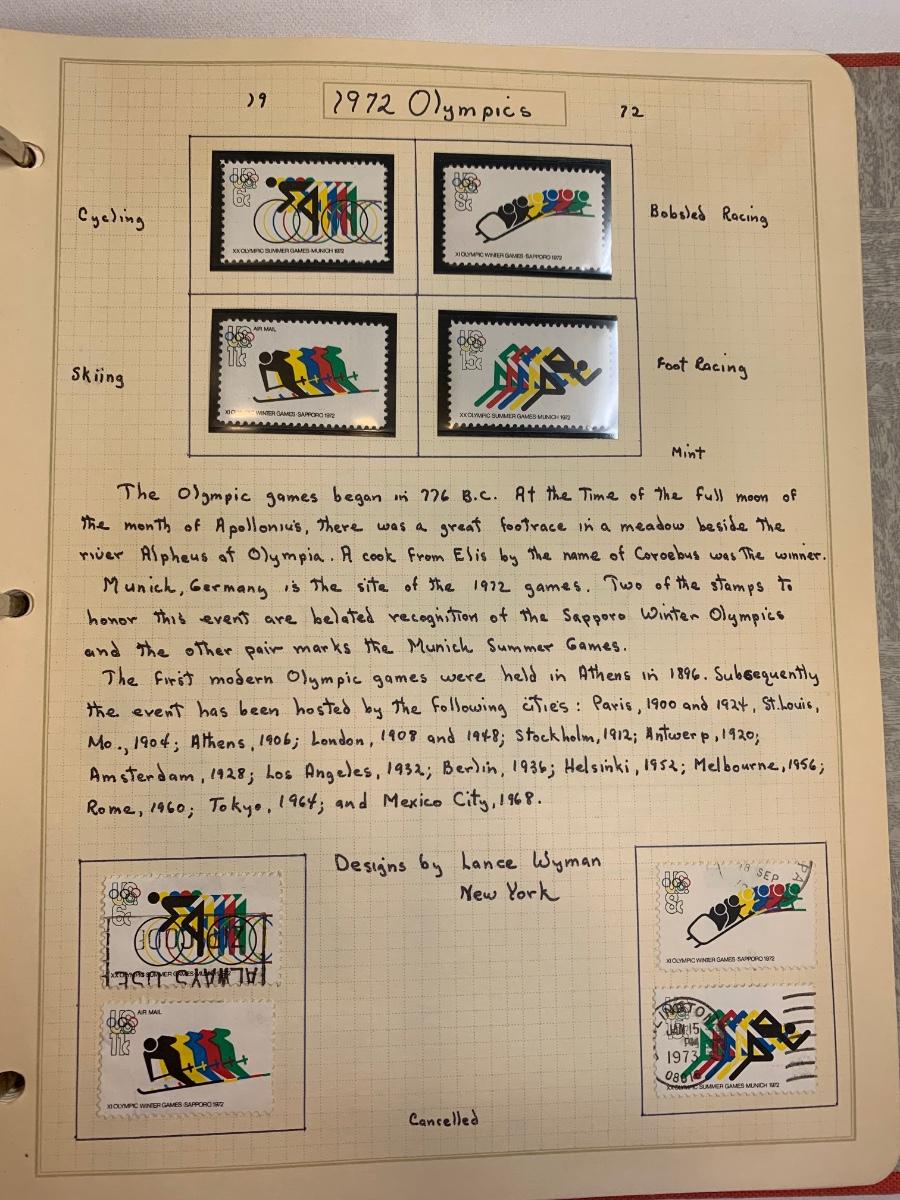 19 1972 Olympics 72
Cycling
US
6c
XX OLYMPIC SUMMER GAMES·MUNICH 1972
US
8c
XI OLYMPIC WINTER GAMES·SAPPORO 1972
Bobsled Racing
Skiing
US AIR MAIL
11c
XI OLYMPIC WINTER GAMES·SAPPORO 1972
US
15c
XX OLYMPIC SUMMER GAMES·MUNICH 1972
Foot Racing
Mint
The Olympic games began in 776 B.C. At the Time of the full moon of
the month of Apollonius, there was a great footrace in a meadow beside the
river Alpheus at Olympia. A cook from Elis by the name of Coroebus was The winner.
Munich, Germany is the site of the 1972 games. Two of the stamps to
honor this event are belated recognition of the Sapporo Winter Olympics
and the other pair marks the Munich Summer Games.
The first modern Olympic games were held in Athens in 1896. Subsequently
the event has been hosted by the following cities: Paris, 1900 and 1924, St. Louis,
Mo., 1904; Athens, 1906; London, 1908 and 1948; Stockholm, 1912; Antwerp, 1920;
Amsterdam, 1928; Los Angeles, 1932; Berlin, 1936; Helsinki, 1952; Melbourne, 1956;
Rome, 1960; Tokyo, 1964; and Mexico City, 1968.
Designs by Lance Wyman
New York
US
6c
ZIP CODE
ALWAYS USE
XX OLYMPIC SUMMER GAMES·MUNICH 1972
US AIR MAIL
11c
XI OLYMPIC WINTER GAMES·SAPPORO 1972
US
8c
18 SEP
PA
XI OLYMPIC WINTER GAMES·SAPPORO 1972
US
15c
LINGTON
JAN 15
PM
1973
XX OLYMPIC SUMMER GAMES·MUNICH 1972
Cancelled